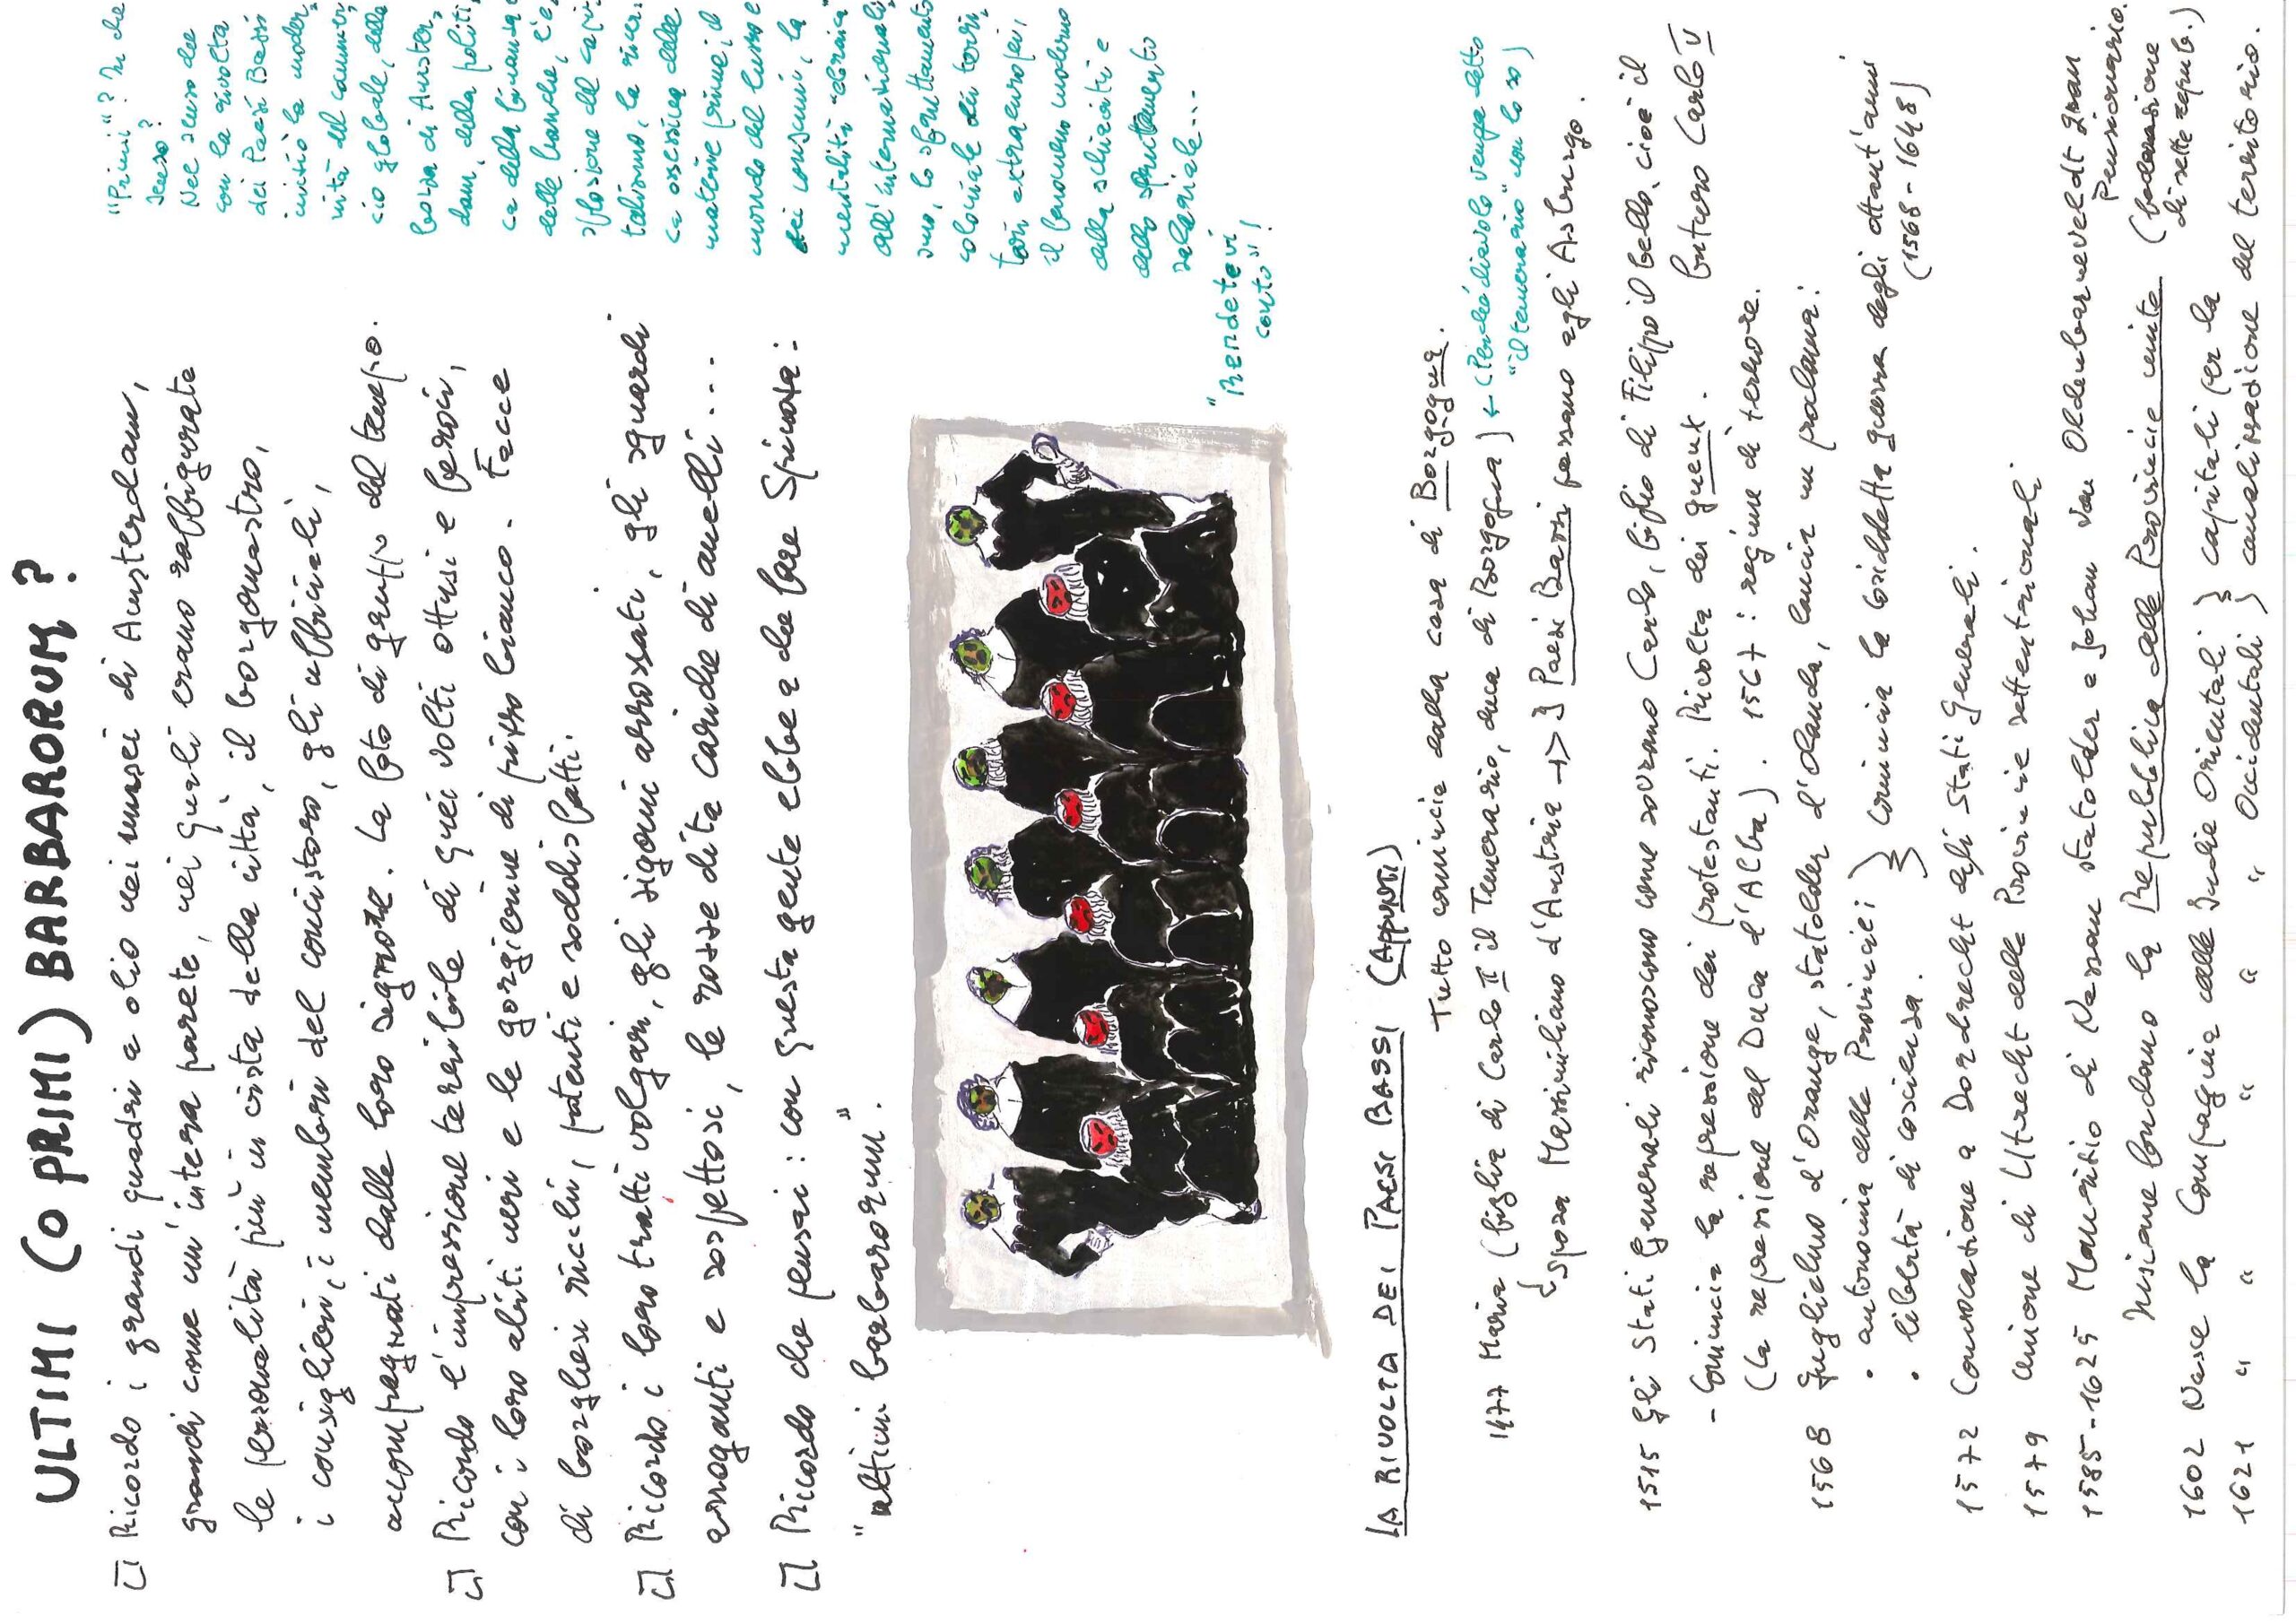 ULTIMI (O PRIMI) BARBARORUM?
Ricordo i grandi quadri a olio nei musei di Amsterdam,
grandi come un'intera parete, nei quali erano raffigurate
le personalità più in vista della città, il borgomastro,
i consiglieri, i membri del concistoro, gli ufficiali,
accompagnati dalle loro signore. La foto di gruppo del tempo.
Ricordo l'impressione terribile di quei volti ottusi e feroci,
con i loro abiti neri e le gorgierine di pizzo bianco. Facce
di borghesi ricchi, potenti e soddisfatti.
Ricordo i loro tratti volgari, gli zigomi arrossati, gli sguardi
arroganti e sospettosi, le rosse dita cariche di anelli...
Ricordo che pensai: con questa gente ebbe a che fare Spinoza:
"ultimi barbarorum".
"Primi"? In che
senso?
Nel senso che
con la rivolta
dei Paesi Bassi
iniziò la moder,
nità del commer,
cio globale, della
borsa di Amster,
dam, della politi,
ca della finanza e
delle banche, l'e,
splosione del capi,
talismo, la ricer,
ca ossessiva delle
materie prime, il
mondo del lusso e
dei consumi, la
mentalità "ebraica"
all'internazionali,
smo, lo sfruttamento
coloniale dei terri,
tori extraeuropei,
il fenomeno moderno
della schiavitù e
dello sfruttamento
salariale...
"Rendetevi
conto"!
LA RIVOLTA DEI PAESI BASSI (APPUNTI)
Tutto comincia dalla casa di Borgogna.
1477 Maria (figlia di Carlo II il Temerario, duca di Borgogna) ← (Perché diavolo venga detto
"il temerario" non lo so)
Sposa Massimiliano d'Austria → I Paesi Bassi passano agli Asburgo.
1515 Gli Stati Generali riconoscono come sovrano Carlo, figlio di Filippo il Bello, cioè il
futuro Carlo V
- Comincia la repressione dei protestanti. Rivolta dei gueux.
(La repressione del Duca d'Alba). 1567: regime di terrore.
1568 Guglielmo d'Orange, statolder d'Olanda, lancia un proclama:
• autonomia delle Provincie;
• libertà di coscienza.
Comincia la cosiddetta guerra degli ottant'anni
(1568-1648)
1572 Convocazione a Dordrecht degli Stati Generali.
1579 Unione di Utrecht delle Provincie settentrionali.
1585-1625 Maurizio di Nassau statolder e Johan van Oldenbarnevelt gran
Pensionario.
Insieme fondano la Repubblica delle Provincie unite (federazione
di sette repubb.)
1602 Nasce la Compagnia delle Indie Orientali } capitali per la
1621 " " " " " Occidentali } canalizzazione del territorio.